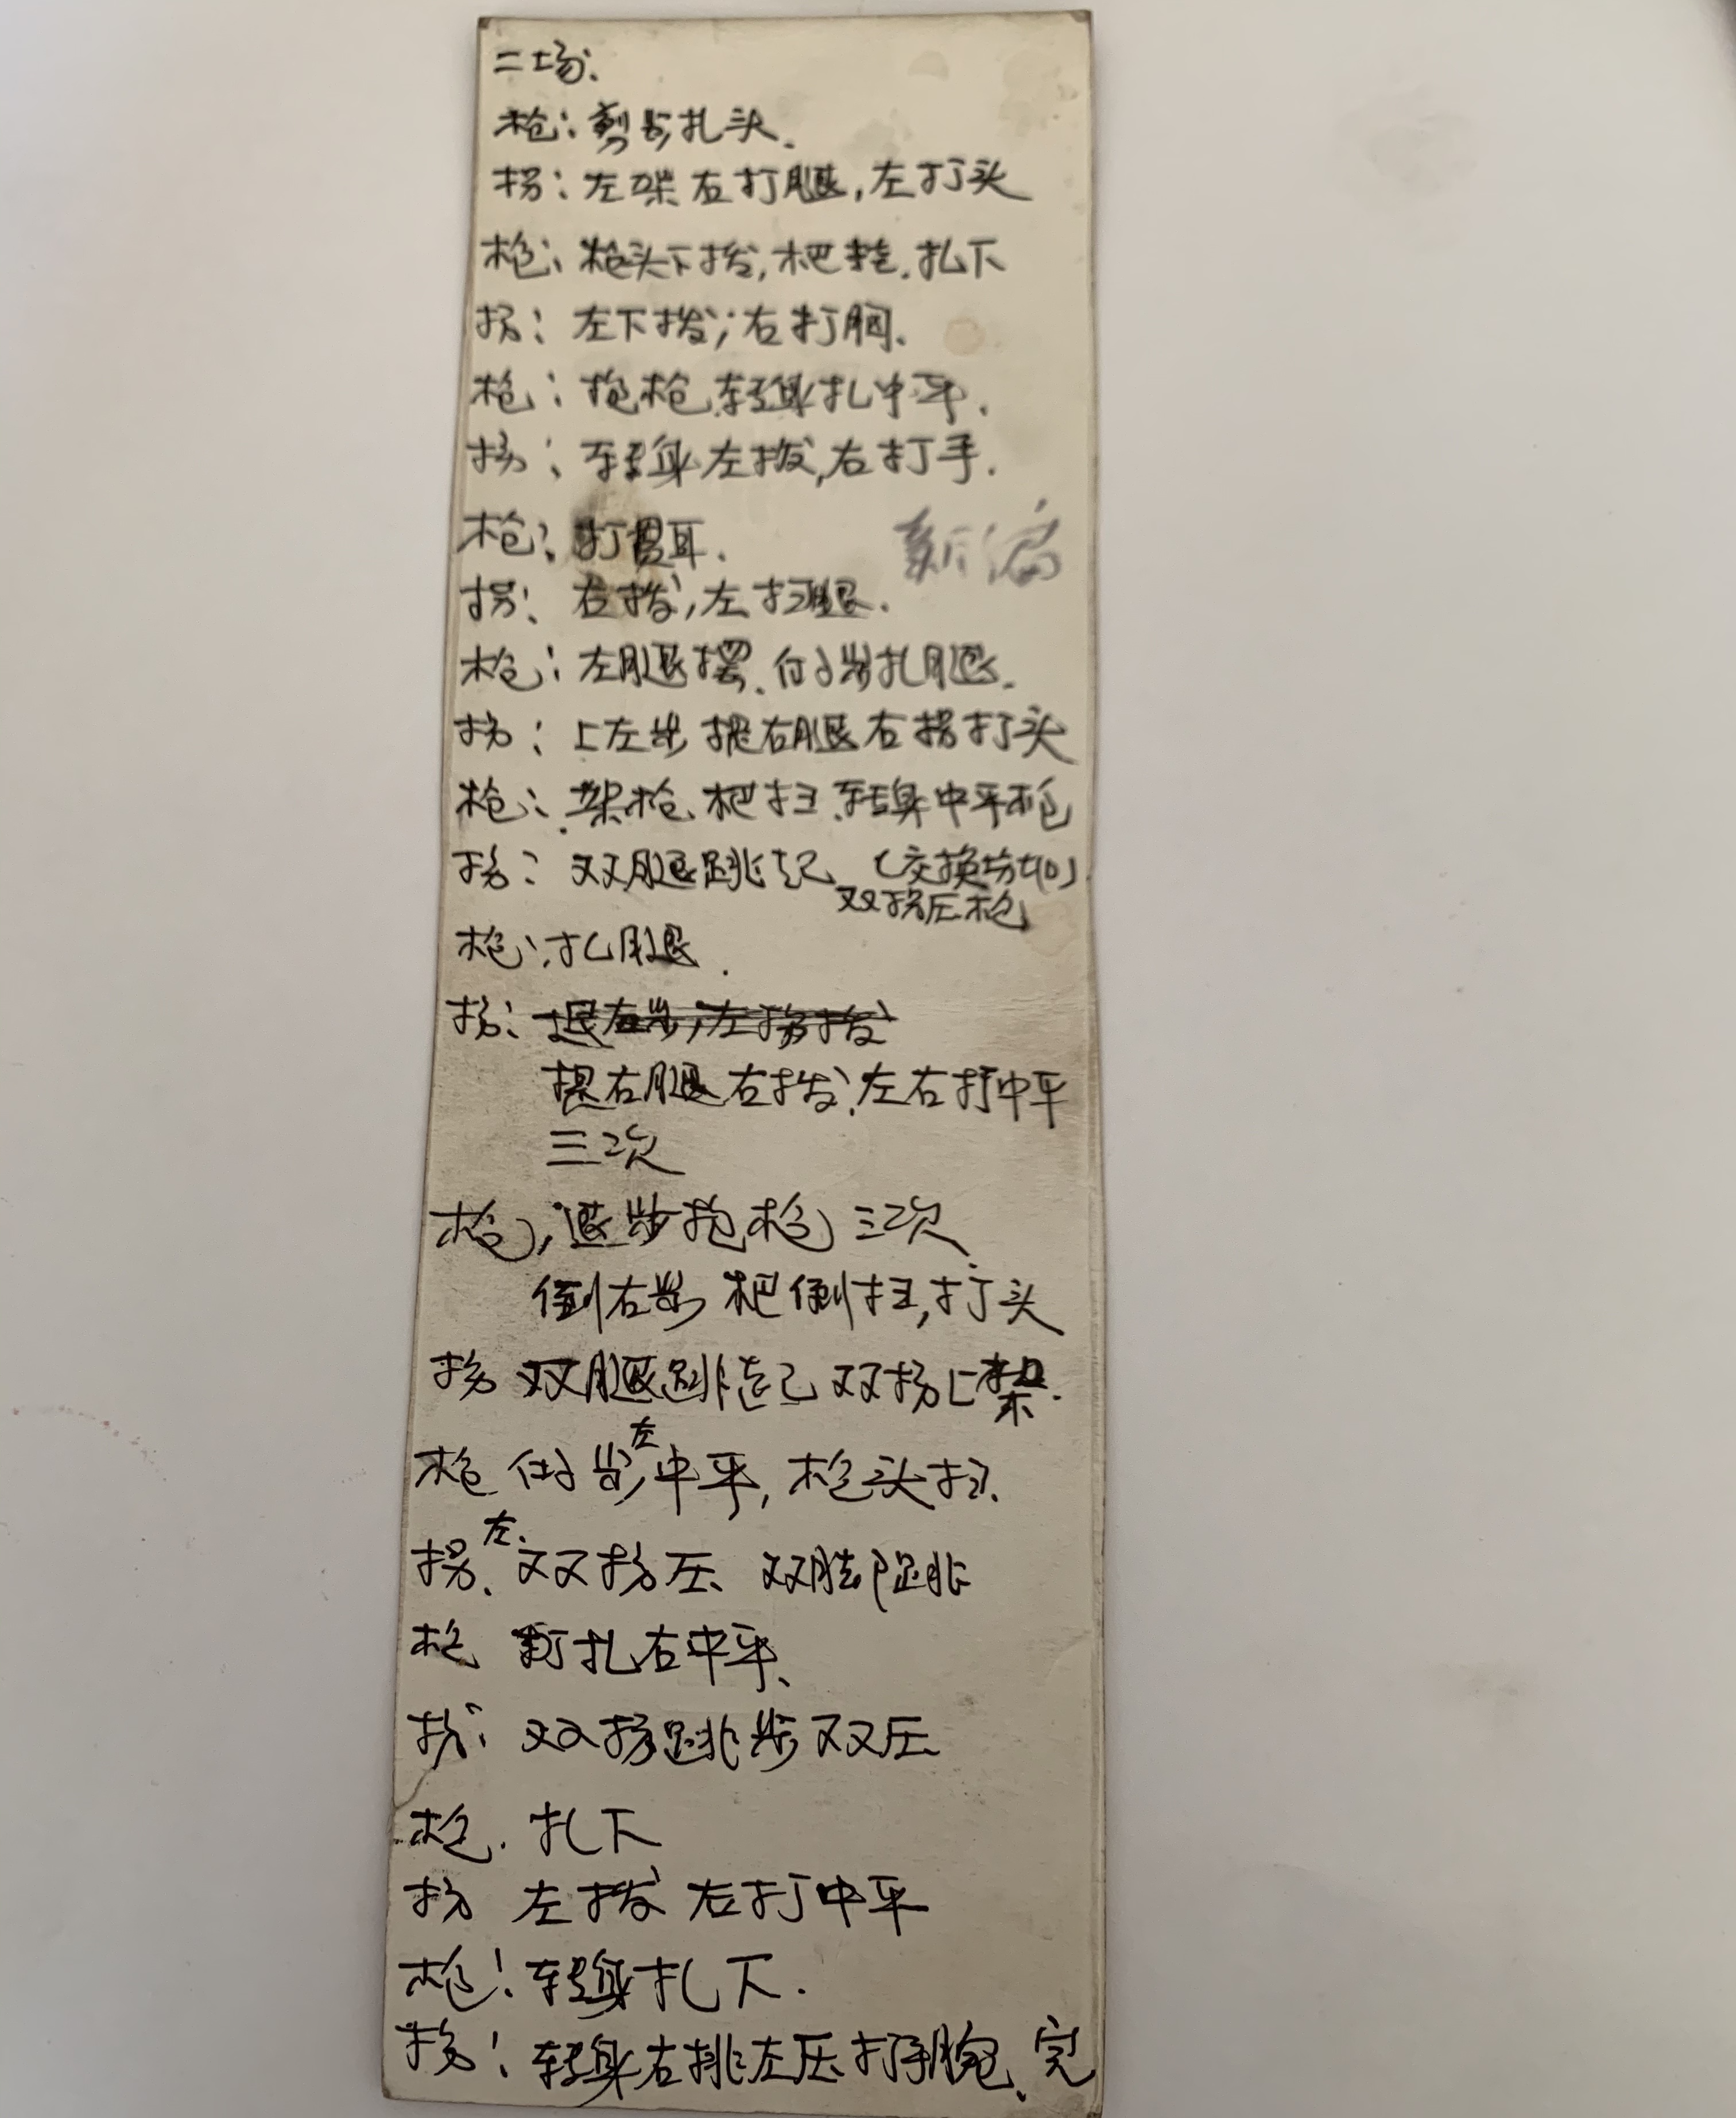 二场.
枪: 剪步扎头.
拐: 左架右打腿,左打头
枪: 枪头下拨,把 扎下
拐: 左下拨;右打胸.
枪: 抱枪.转身扎中平.
拐: 转身左拨,右打手.
枪: 打贯耳. 新编
拐: 右拨,左扫腿.
枪: 左腿摆.仆步扎腿.
拐: 上左步提右腿右拐打头
枪: 架枪.把扫.转身中平枪
拐: 双腿跳起 (交换方向)
双拐压枪
枪: 扎腿.
拐: 提右步,左拐拨
提右腿右拨,左右打中平
三次
枪, 退步抱枪三次
倒右步 把倒扫,打头
拐 双腿跳起双拐上架.
枪 仆步左中平,枪头扫.
拐.左.双拐压、双脚跳
枪 扎右中平、
拐: 双拐跳步双压
枪. 扎下
拐 左拨右打中平
枪: 转身扎下.
拐: 转身右挑左压打手腕、完